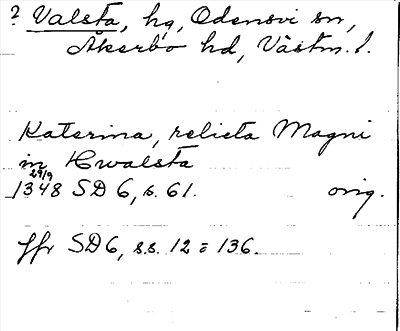 ? Valsta, hg, Odensvi sn,
Åkerbo hd, Västm. l.
Katerina, relicta Magni
in Hwalsta
29/9
1348 SD 6, s. 61. orig.
jfr SD 6, s.s. 12 = 136.